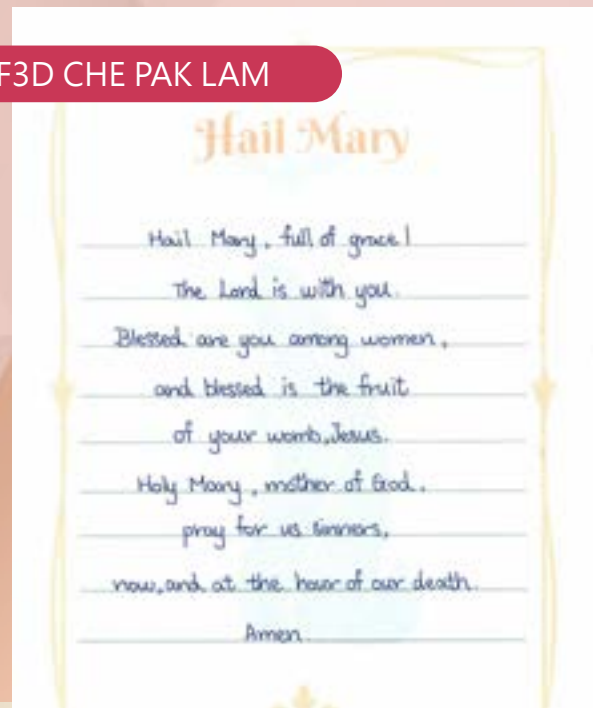 F3D CHE PAK LAM
Hail Mary
Hail Mary, full of grace!
The Lord is with you.
Blessed are you among women,
and blessed is the fruit
of your womb, Jesus.
Holy Mary, mother of God,
pray for us sinners,
now, and at the hour of our death.
Amen